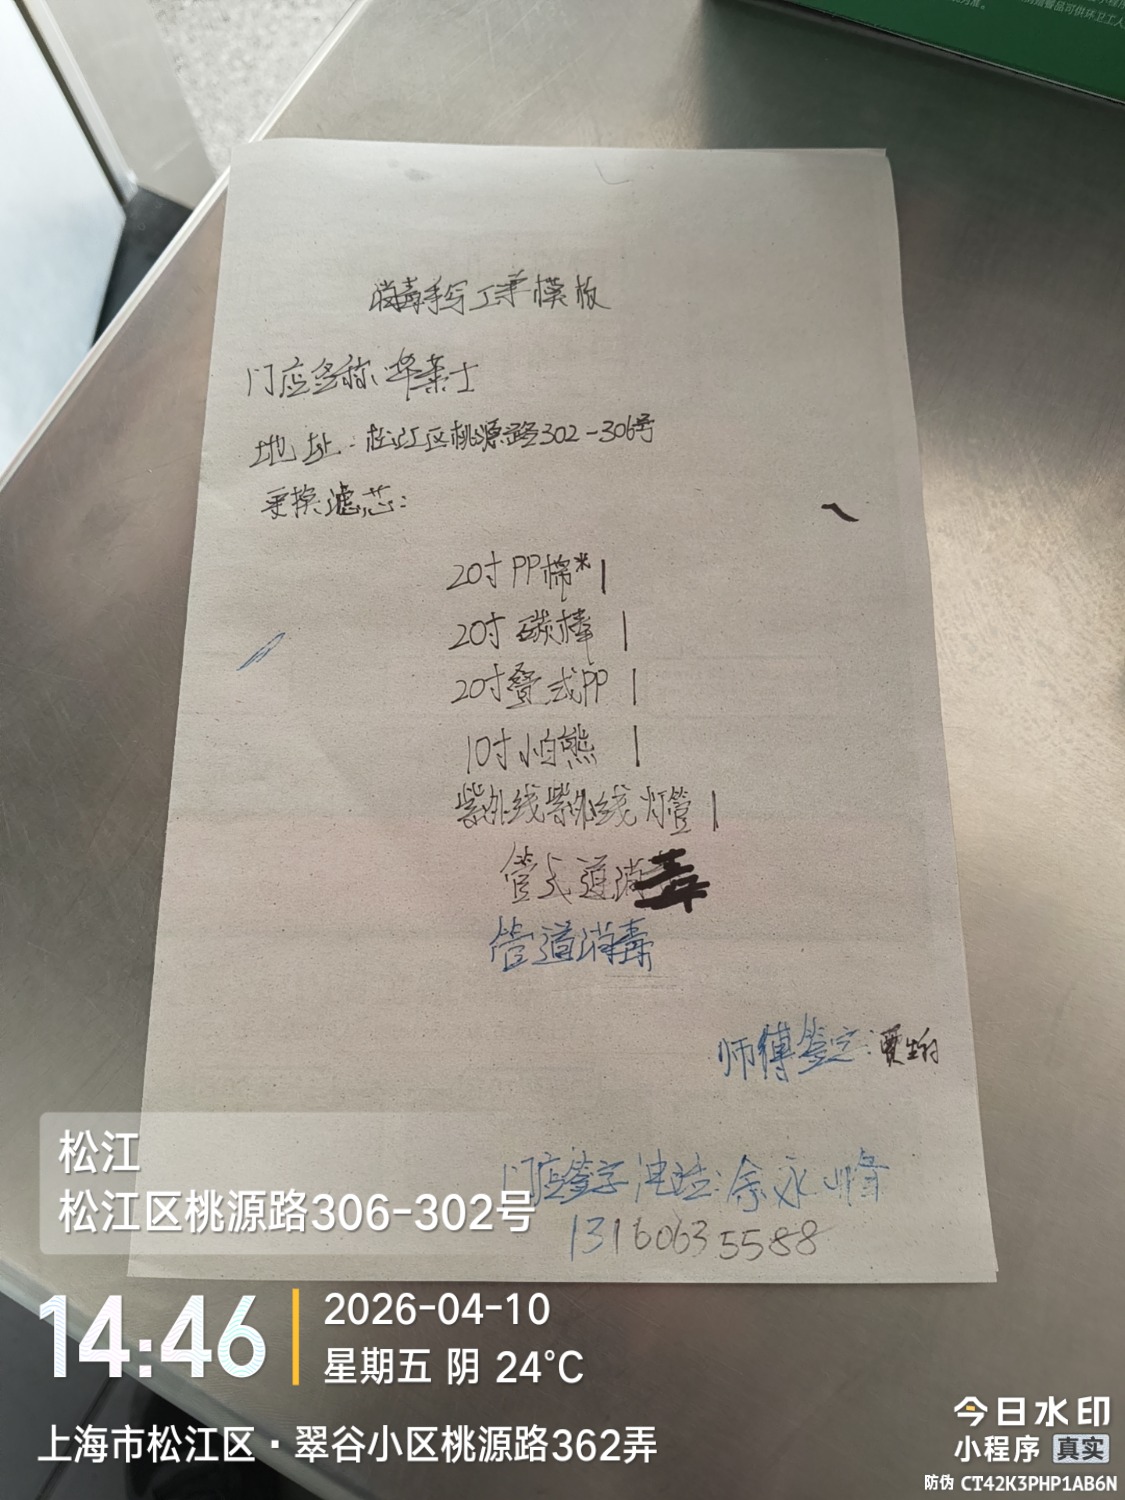 消毒手写工单模板
门店名称:华莱士
地址:松江区桃源路302-306号
更换滤芯:
20寸PP棉*1
20寸碳棒 1
20寸叠式PP 1
10寸小白熊 1
紫外线紫外线灯管1
管式道消
管道消毒
师傅签字:贾
门店签字 电话:余永峰
13160635588
松江
松江区桃源路306-302号
14:46
2026-04-10
星期五 阴 24°C
上海市松江区·翠谷小区桃源路362弄
今日水印
小程序 真实
防伪 CT42K3PHP1AB6N